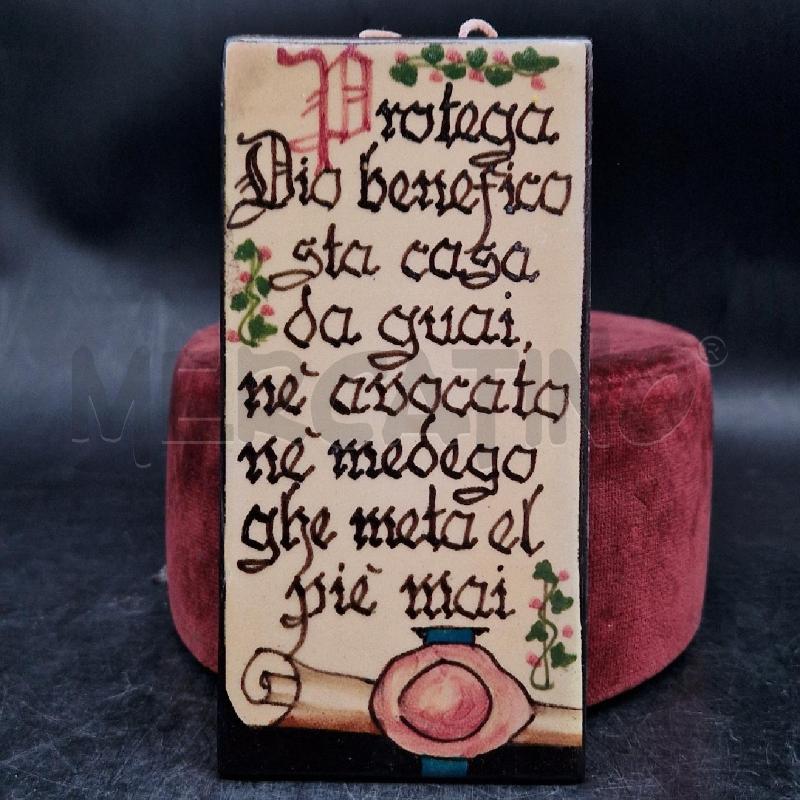 Protega
Dio benefico
sta casa
da guai,
nè avocato
nè medego
ghe meta el
piè mai
MERCATINO®